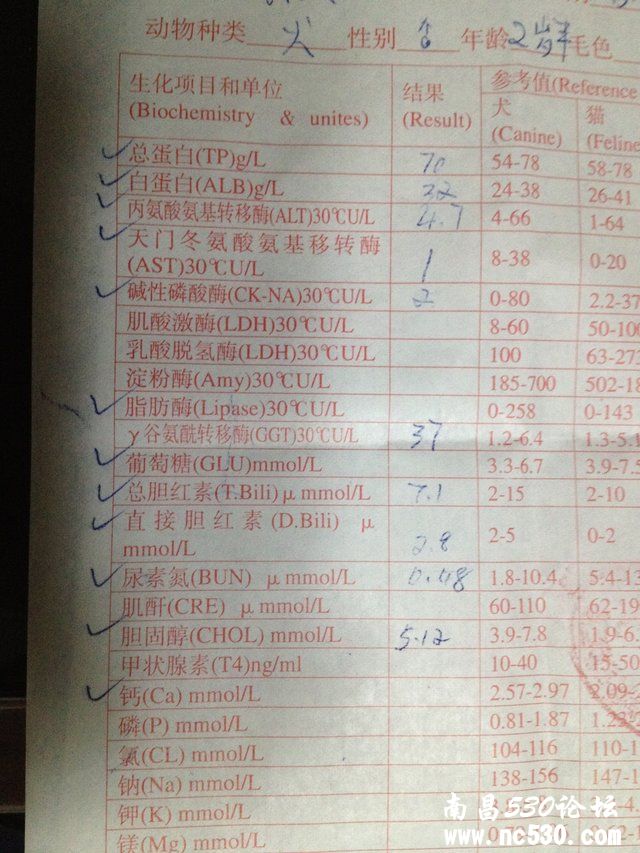 动物种类 犬 性别 年龄 2岁半 毛色
生化项目和单位 结果 参考值(Reference
(Biochemistry & unites) (Result) 犬 猫
(Canine) (Feline
总蛋白(TP)g/L 70 54-78 58-78
白蛋白(ALB)g/L 32 24-38 26-41
丙氨酸氨基转移酶(ALT)30℃U/L 4.7 4-66 1-64
天门冬氨酸氨基移转酶
(AST)30℃U/L 1 8-38 0-20
碱性磷酸酶(CK-NA)30℃U/L 2 0-80 2.2-37
肌酸激酶(LDH)30℃U/L 8-60 50-100
乳酸脱氢酶(LDH)30℃U/L 100 63-273
淀粉酶(Amy)30℃U/L 185-700 502-18
脂肪酶(Lipase)30℃U/L 0-258 0-143
γ谷氨酰转移酶(GGT)30℃U/L 37 1.2-6.4 1.3-5.1
葡萄糖(GLU)mmol/L 3.3-6.7 3.9-7.5
总胆红素(T.Bili)μmmol/L 7.1 2-15 2-10
直接胆红素(D.Bili) μ
mmol/L 2.8 2-5 0-2
尿素氮(BUN) μmmol/L 0.48 1.8-10.4 5.4-13
肌酐(CRE) μmmol/L 60-110 62-19
胆固醇(CHOL) mmol/L 5.12 3.9-7.8 1.9-6
甲状腺素(T4)ng/ml 10-40 15-50
钙(Ca) mmol/L 2.57-2.97 2.09-
磷(P) mmol/L 0.81-1.87
氯(CL) mmol/L 104-116 110-1
钠(Na) mmol/L 138-156 147-1
钾(K) mmol/L
镁(Mg) mmol/L
南昌530论坛
www.nc530.com